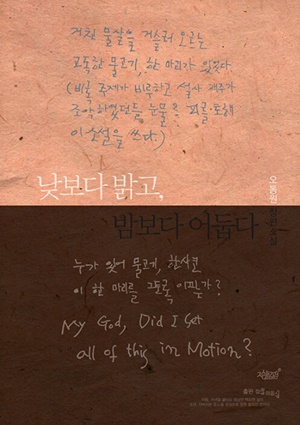 거친 물살을 거슬러 오르는
고독한 물고기, 한 마리가 있었다
(비록 주제가 비루하고 설사 재주가
조악하였던들 눈물로 피를 토해
이 소설을 쓰다.)
낮보다 밝고,
밤보다 어둡다
오동원 장편소설
누가 있어 물고기, 한사코
이 한 마리를 그토록 아꼈는가?
My God, Did I Set
all of this in Motion?